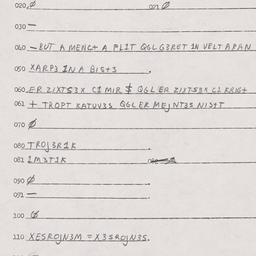 020, Ø 021 Ø
030 —
040 — BUT A MENG+ A PLIT QGLG3RET IN VELT APAN
050 XARP3 1NA BIS+3
060 ER Z1XTS3X C1 MIR $ QGL ER Z1XTS3X C1 KRIG+
061 + TROPT KATUV3S QGLER MEJNT3S NIST
070 Ø
080 TROJ3R1K
081 1M3T1K
090 Ø
091 —
100 Ø
110 XESROJN3M = X3SROJN3S.